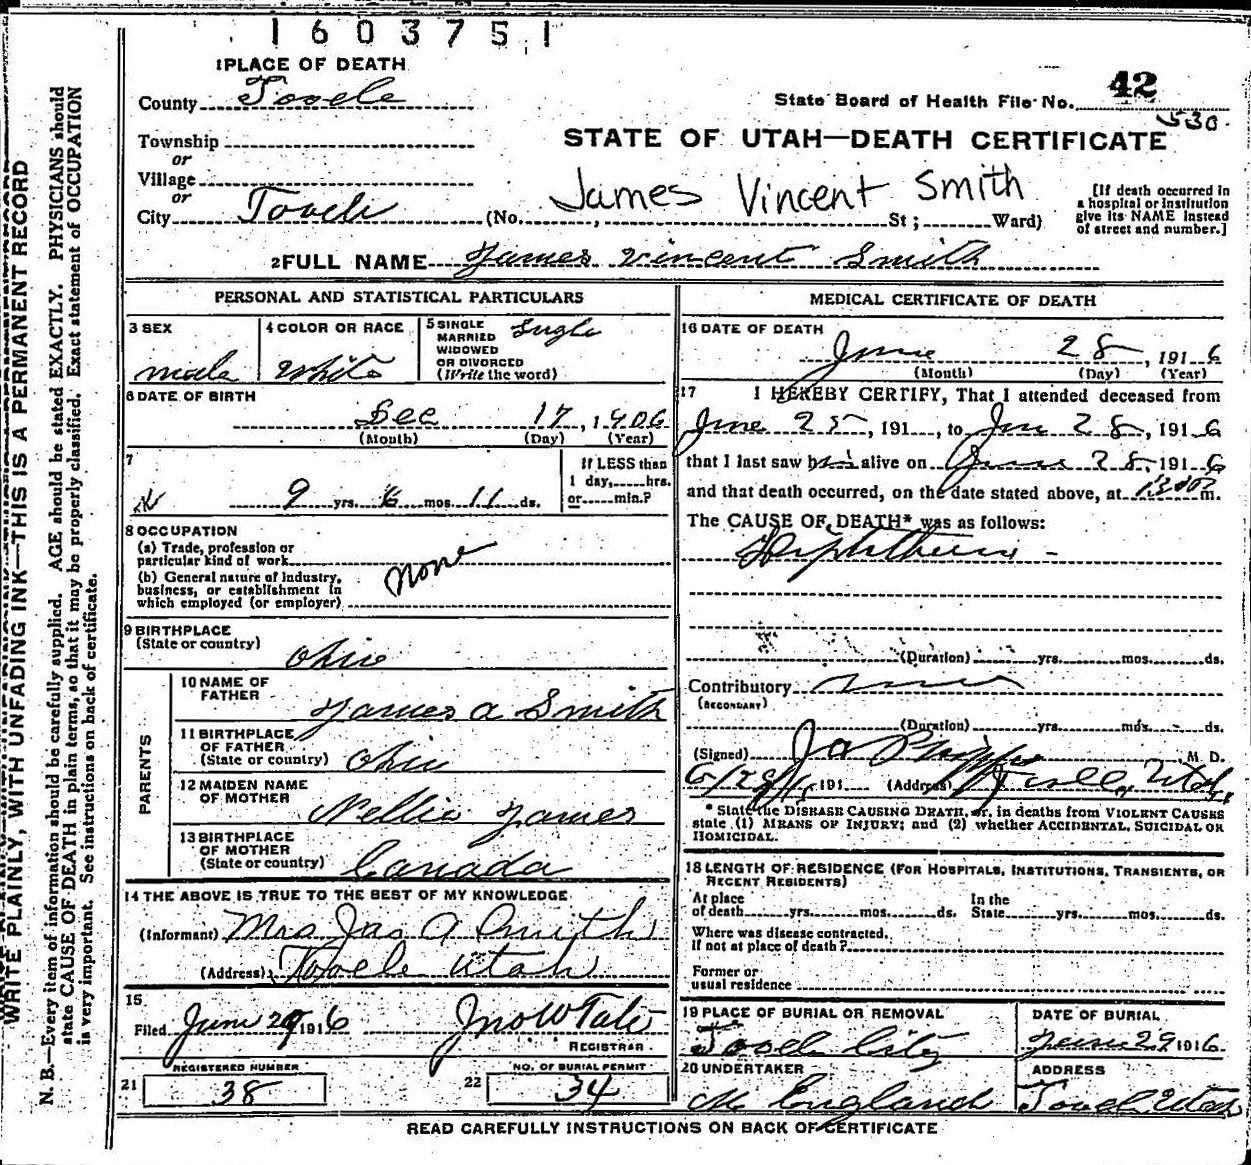 1603751
1 PLACE OF DEATH
County Tooele
State Board of Health File No. 42
530
Township
or
Village
or
City Tooele (No. , St ; Ward)
STATE OF UTAH—DEATH CERTIFICATE
James Vincent Smith
[If death occurred in
a hospital or institution
give its NAME instead
of street and number.]
2 FULL NAME James Vincent Smith
PERSONAL AND STATISTICAL PARTICULARS
3 SEX
male
4 COLOR OR RACE
White
5 SINGLE
MARRIED
WIDOWED
OR DIVORCED
(Write the word)
Single
6 DATE OF BIRTH
Dec 17, 1906
(Month) (Day) (Year)
7
9 yrs. 6 mos. 11 ds.
If LESS than
1 day, hrs.
or min.?
8 OCCUPATION
(a) Trade, profession or
particular kind of work
(b) General nature of Industry,
business, or establishment in
which employed (or employer)
none
9 BIRTHPLACE
(State or country)
Ohio
PARENTS
10 NAME OF
FATHER
James A Smith
11 BIRTHPLACE
OF FATHER
(State or country)
Ohio
12 MAIDEN NAME
OF MOTHER
Nellie James
13 BIRTHPLACE
OF MOTHER
(State or country)
Canada
14 THE ABOVE IS TRUE TO THE BEST OF MY KNOWLEDGE
(Informant) Mrs Jas A Smith
(Address) Tooele Utah
15
Filed June 29 1916 Jno W Tate
REGISTRAR
REGISTERED NUMBER
21 38
NO. OF BURIAL PERMIT
22 34
MEDICAL CERTIFICATE OF DEATH
16 DATE OF DEATH
June 28, 1916
(Month) (Day) (Year)
17 I HEREBY CERTIFY, That I attended deceased from
June 25, 191 , to June 28, 1916
that I last saw him alive on June 28, 1916
and that death occurred, on the date stated above, at m.
The CAUSE OF DEATH* was as follows:
Diphtheria -
(Duration) yrs. mos. ds.
Contributory none
(SECONDARY)
(Duration) yrs. mos. ds.
(Signed) J A Phipps M. D.
6/29/16, 191 (Address) Tooele, Utah.
* State the DISEASE CAUSING DEATH, or, in deaths from VIOLENT CAUSES
state (1) MEANS OF INJURY; and (2) whether ACCIDENTAL, SUICIDAL OR
HOMICIDAL.
18 LENGTH OF RESIDENCE (FOR HOSPITALS, INSTITUTIONS, TRANSIENTS, OR
RECENT RESIDENTS)
At place
of death yrs. mos. ds.
In the
State yrs. mos. ds.
Where was disease contracted,
if not at place of death?
Former or
usual residence
19 PLACE OF BURIAL OR REMOVAL
Tooele City
DATE OF BURIAL
June 29 1916.
20 UNDERTAKER
M England
ADDRESS
Tooele Utah
READ CAREFULLY INSTRUCTIONS ON BACK OF CERTIFICATE
WRITE PLAINLY, WITH UNFADING INK—THIS IS A PERMANENT RECORD
N. B.—Every item of information should be carefully supplied. AGE should be stated EXACTLY. PHYSICIANS should
state CAUSE OF DEATH in plain terms, so that it may be properly classified. Exact statement of OCCUPATION
is very important. See instructions on back of certificate.